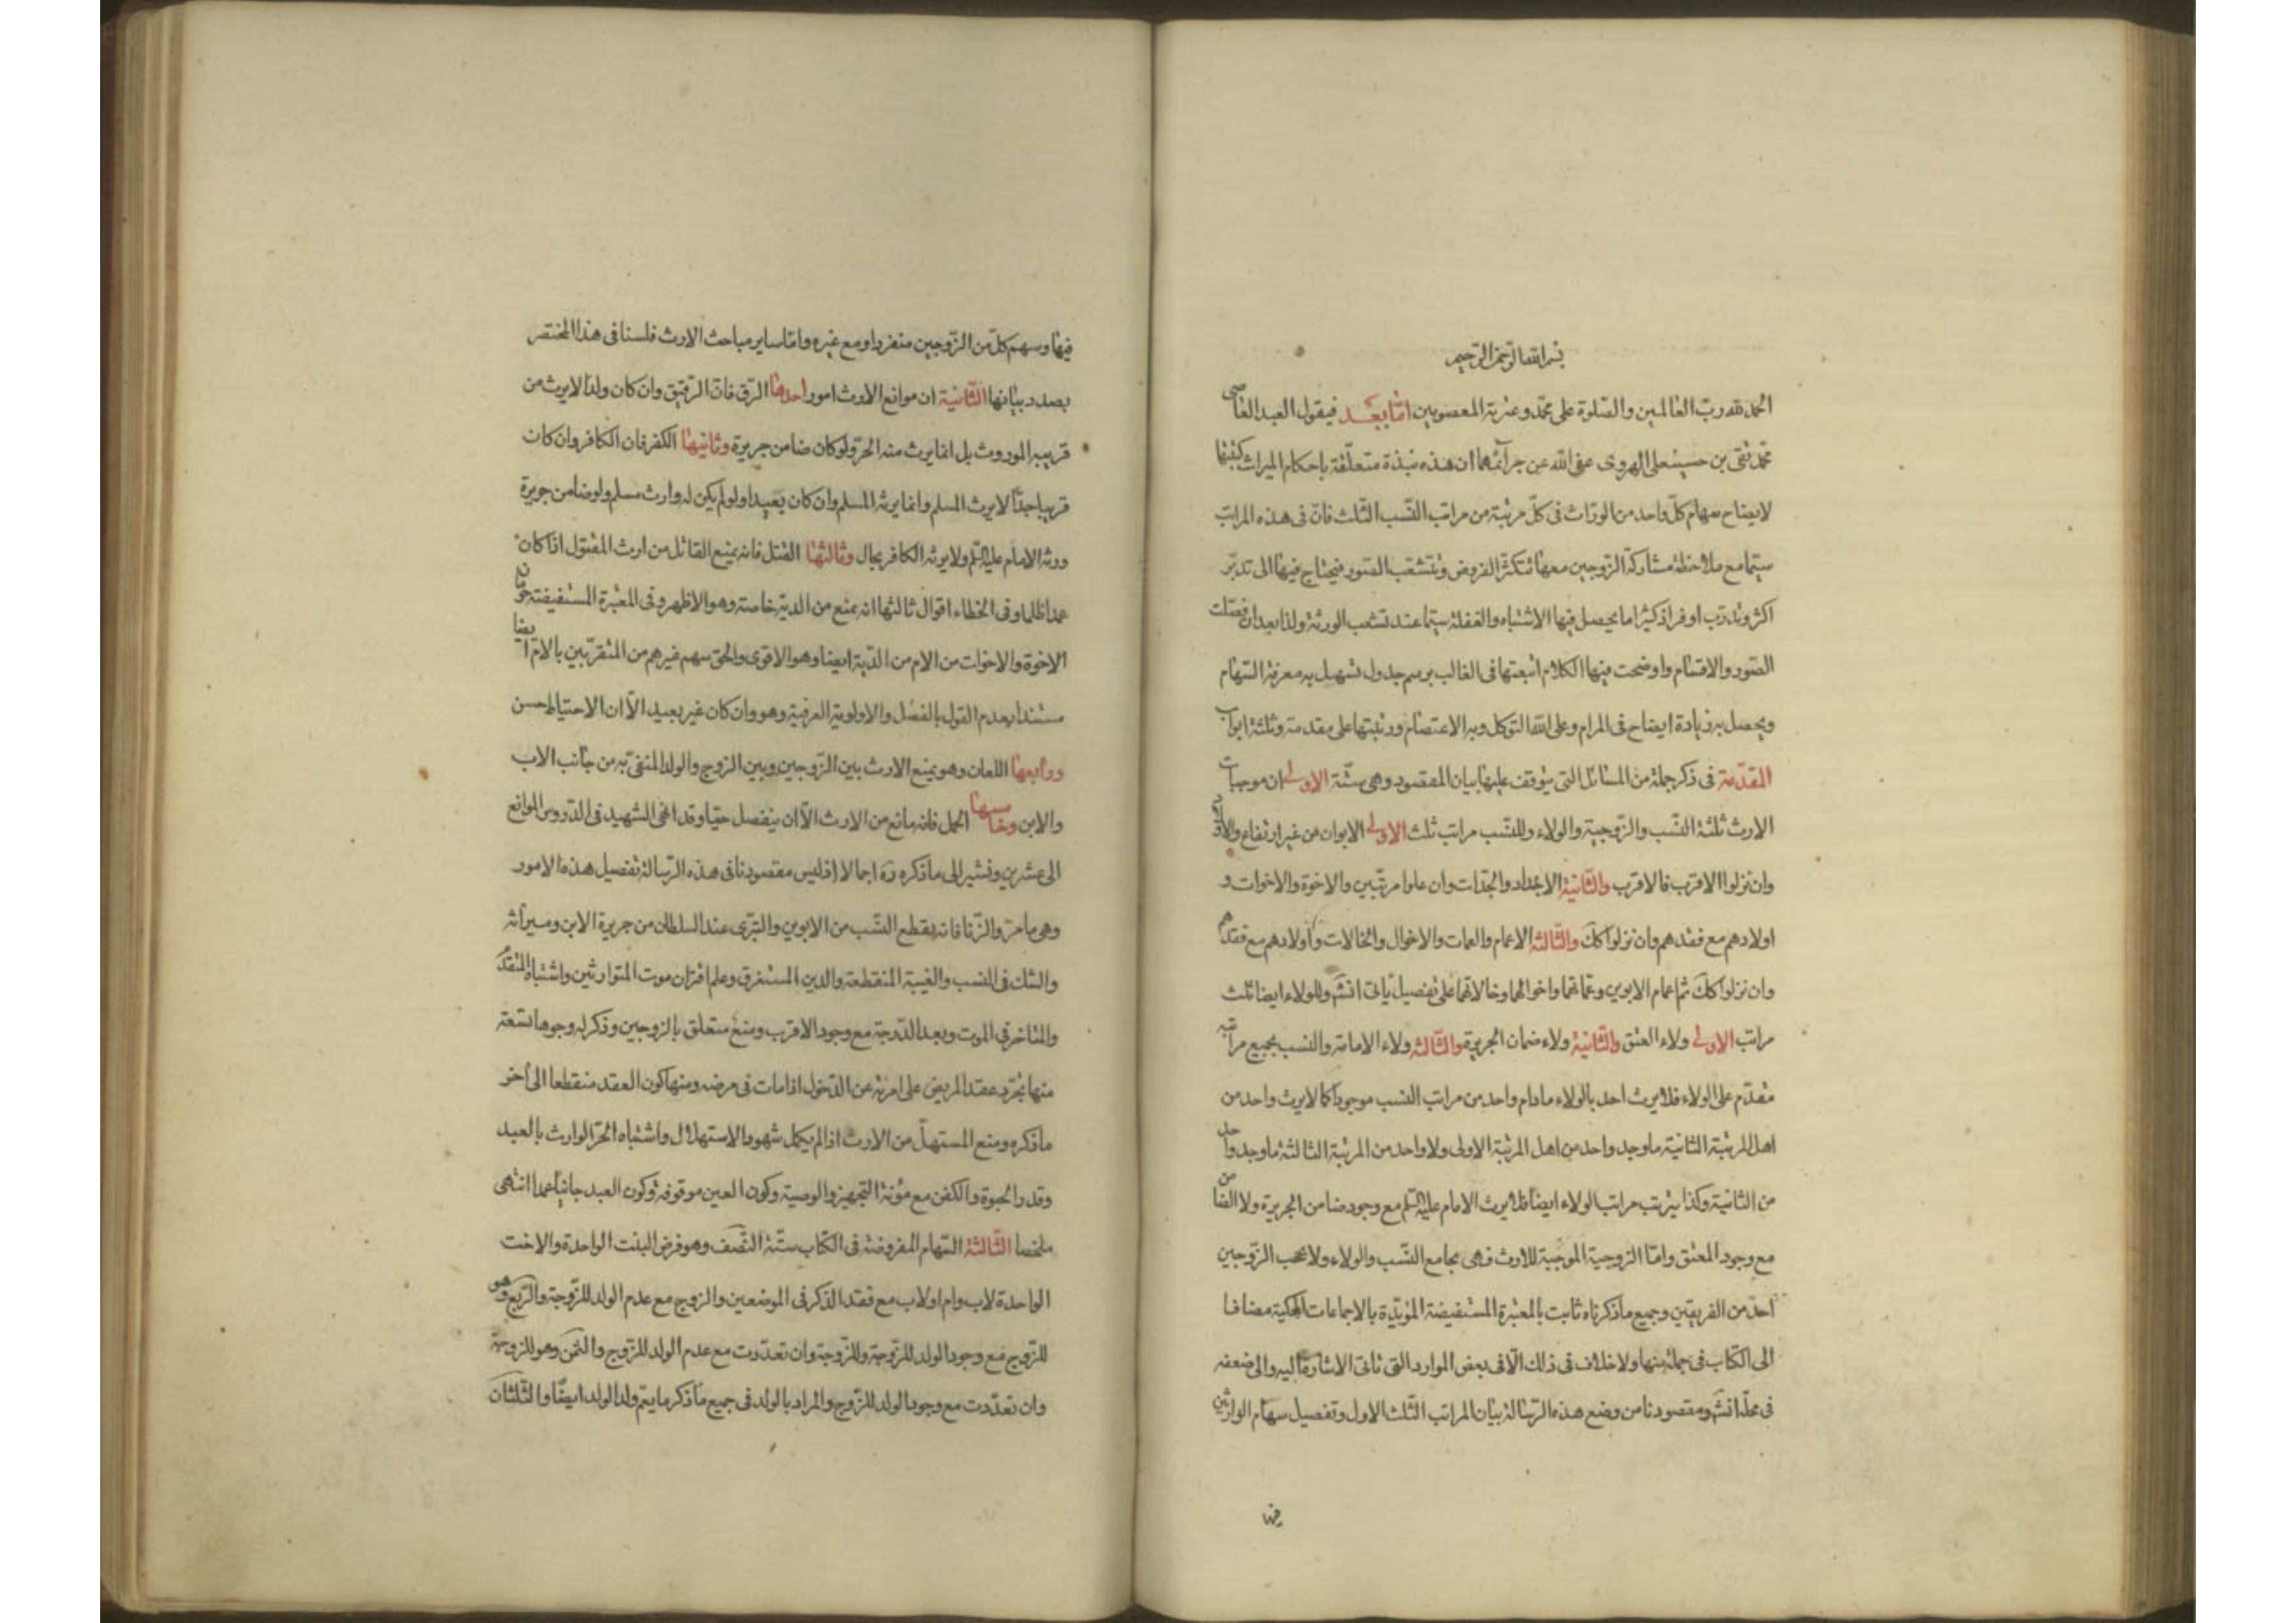 بسم الله الرحمن الرحیم
الحمد لله ربّ العالمین والصّلوة علی محمّد وعترته المعصومین امّا بعد فیقول العبد العاصی
محمّد تقی بن حسینعلی الهروی عفی الله عن جرآئمهما ان هذه نبذة متعلّقة باحکام المیراث کتبتها
لایضاح سهام کلّ واحد من الورّاث فی کلّ مرتبة من مراتب النّسب الثّلث فانّ فی هذه المراتب
سیّما مع ملاحظة مشارکة الزّوجین معها تتکثّر الفروض وتتشعّب الصّور فیحتاج فیها الی تدبّر
اکثر وتدرّب اوفر اذ کثیرا ما یحصل فیها الاشتباه والغفلة سیّما عند تشعب الورثة ولذا بعد ان فصّلت
الصّور والاقسام واوضحت فیها الکلام اتبعتها فی الغالب برسم جدول تسهیل به معرفة السّهام
ویحصل به زیادة ایضاح فی المرام وعلی الله التوکل وبه الاعتصام ورتّبتها علی مقدمة وثلثة ابواب
المقدّمة فی ذکر جملة من المسائل التی یتوقف علیها بیان المقصود وهی ستّة الاولی ان موجبات
الارث ثلثة النّسب والزّوجیة والولاء وللنّسب مراتب ثلث الاولی الابوان من غیر ارتفاع والاولاد
وان نزلوا الاقرب فالاقرب والثّانیة الاجداد والجدّات وان علوا مرتّبین والاخوة والاخوات و
اولادهم مع فقدهم وان نزلوا کک والثّالثة الاعمام والعمات والاخوال والخالات واولادهم مع فقدهم
وان نزلوا کک ثم اعمام الابوین وعمّاتهما واخوالهما وخالاتهما علی تفصیل یاتی انشٓ وللولاء ایضا ثلث
مراتب الاولی ولاء العتق والثّانیة ولاء ضمان الجریرة والثّالثة ولاء الامامة والنسب بجمیع مراتبه
مقدّم علی الولاء فلا یرث احد بالولاء مادام واحد من مراتب النسب موجودا کما لا یرث واحد من
اهل المرتبة الثانیة ما وجد واحد من اهل المرتبة الاولی ولا واحد من المرتبة الثالثة ما وجد واحد
من الثانیة وکذا یترتب مراتب الولاء ایضا فلا یرث الامام علیه السّلم مع وجود ضامن الجریرة ولا الضامن
مع وجود المعتق وامّا الزوجیة الموجبة للارث فهی یجامع النّسب والولاء ولا یحجب الزّوجین
احد من الفریقین وجمیع ما ذکرناه ثابت بالمعتبرة المستفیضة المؤیّدة بالاجماعات المحکیة مضافا
الی الکتاب فی جملة منها ولا خلاف فی ذلک الّا فی بعض الموارد التی تاتی الاشارة الیه والی ضعفه
فی محلّه انشٓ ومقصودنا من وضع هذه الرّسالة بیان المراتب الثّلث الاول وتفصیل سهام الوارثین
فیها
فیها وسهم کلّ من الزّوجین منفردا ومع غیره وامّا سایر مباحث الارث فلسنا فی هذا المختصر
بصدد بیانها الثّانیة ان موانع الارث امور احدها الرّق فانّ الرّقیق وان کان ولدا لا یرث من
قریبه الموروث بل انما یرث منه الحرّ ولو کان ضامن جریرة وثانیها الکفر فان الکافر وان کان
قریبا جدّا لا یرث المسلم وانما یرثه المسلم وان کان بعیدا ولو لم یکن له وارث مسلم ولو ضامن جریرة
ورثه الامام علیه السّلم ولا یرثه الکافر بحال وثالثها القتل فانه یمنع القاتل من ارث المقتول اذا کان
عمدا ظلما وفی الخطاء اقوال ثالثها انه یمنع من الدیة خاصة وهو الاظهر وفی المعتبرة المستفیضة حرمان
الاخوة والاخوات من الام من الدّیة ایضا وهو الاقوی والحق سهم غیرهم من المتقرّبین بالام ایضا
مستندا بعدم القول بالفصل والاولویة العرفیة وهو وان کان غیر بعید الّا ان الاحتیاط حسن
ورابعها اللعان وهو یمنع الارث بین الزّوجین وبین الزوج والولد المنفیّ به من جانب الاب
والابن وخامسها الحمل فانه مانع من الارث الّا ان ینفصل حیّا وقد انهی الشهید فی الدّروس الموانع
الی عشرین ونشیر الی ما ذکره ره اجمالا اذ لیس مقصودنا فی هذه الرّسالة تفصیل هذه الامور
وهی ما مرّ والزّنا فانه یقطع النّسب من الابوین والتبرّی عند السلطان من جریرة الابن ومیراثه
والشک فی النسب والغیبة المنقطعة والدین المستغرق وعلم اقتران موت المتوارثین واشتباه المتقدّم
والمتاخر فی الموت وبعد الدّرجة مع وجود الاقرب ومنع متعلق بالزوجین وذکر له وجوها تسعة
منها تجرّد عقد المریض علی امرئة عن الدّخول اذا مات فی مرضه ومنها کون العقد منقطعا الی اخر
ما ذکره ومنع المستهلّ من الارث اذا لم یکمل شهود الاستهلال واشتباه الحرّ الوارث بالعبد
وقدر الحبوة والکفن مع مؤنة التجهیز والوصیة وکون العین موقوفة وکون العبد جانیا عمدا انتهی
ملخصا الثّالثة السّهام المفروضة فی الکتاب ستّة النّصف وهو فرض البنت الواحدة والاخت
الواحدة لاب وام او لاب مع فقد الذکر فی الموضعین والزوج مع عدم الولد للزّوجة والرّبع وهو
للزّوج مع وجود الولد للزّوجة وللزّوجة وان تعدّدت مع عدم الولد للزّوج والثمن وهو للزوجة
وان تعدّدت مع وجود الولد للزّوج والمراد بالولد فی جمیع ما ذکر ما یعم ولد الولد ایضا والثّلثان